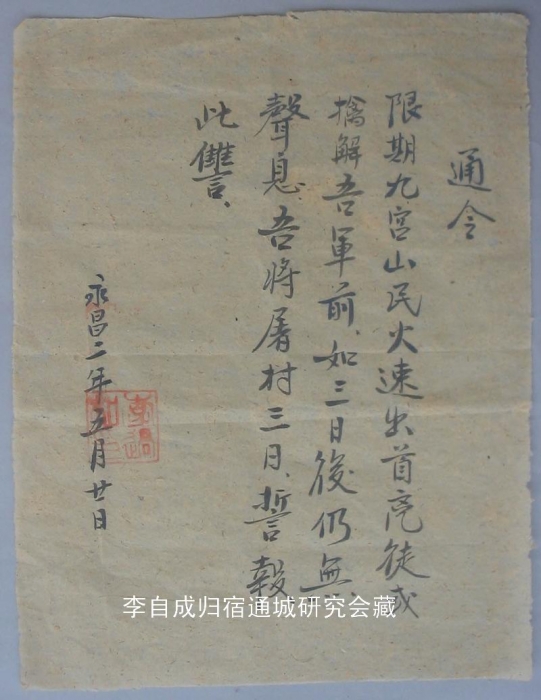 通令
限期九宫山民火速出首兇徒或
擒解吾軍前、如三日後仍無
聲息、吾将屠村三日、誓報
此讐、
永昌二年五月廿日
李自成归宿通城研究会藏